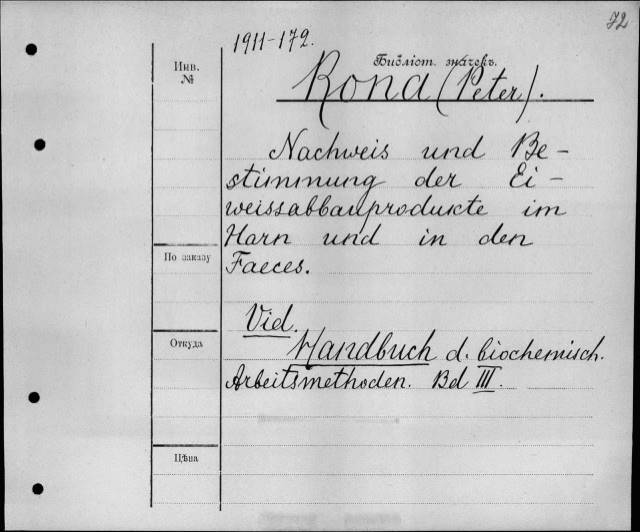 72
1911-172.
Библіот. значекъ.
Инв.
№
Rona (Peter).
Nachweis und Be-
stimmung der Ei-
weissabbauprodukte im
Harn und in den
Faeces.
По заказу
Vid.
Откуда
Handbuch d. biochemisch.
Arbeitsmethoden. Bd III.
Цѣна